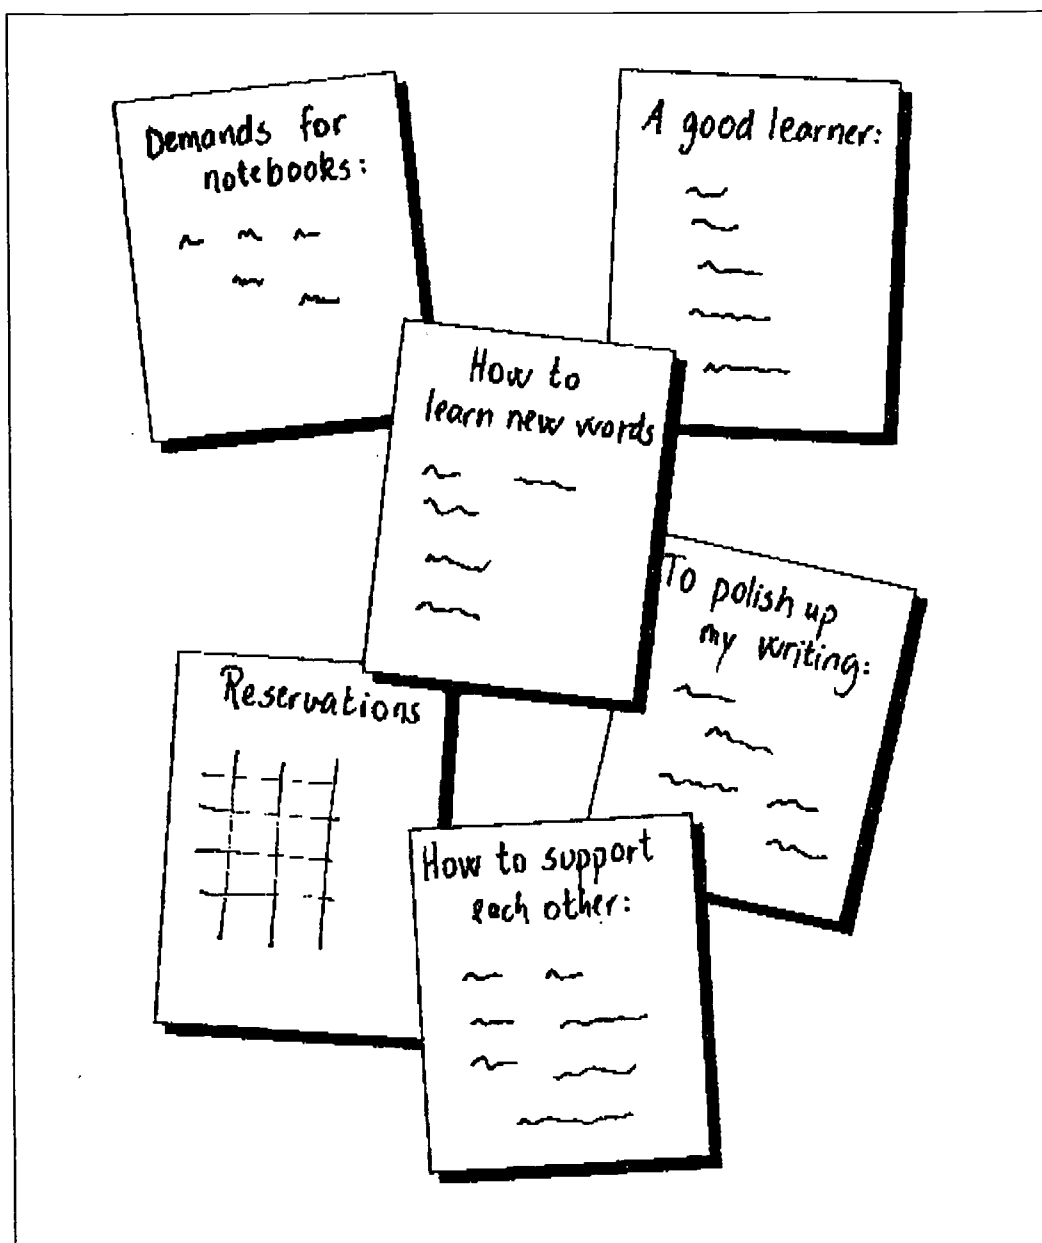 Demands for
notebooks:
A good learner:
How to
learn new words
To polish up
my writing:
Reservations
How to support
each other: